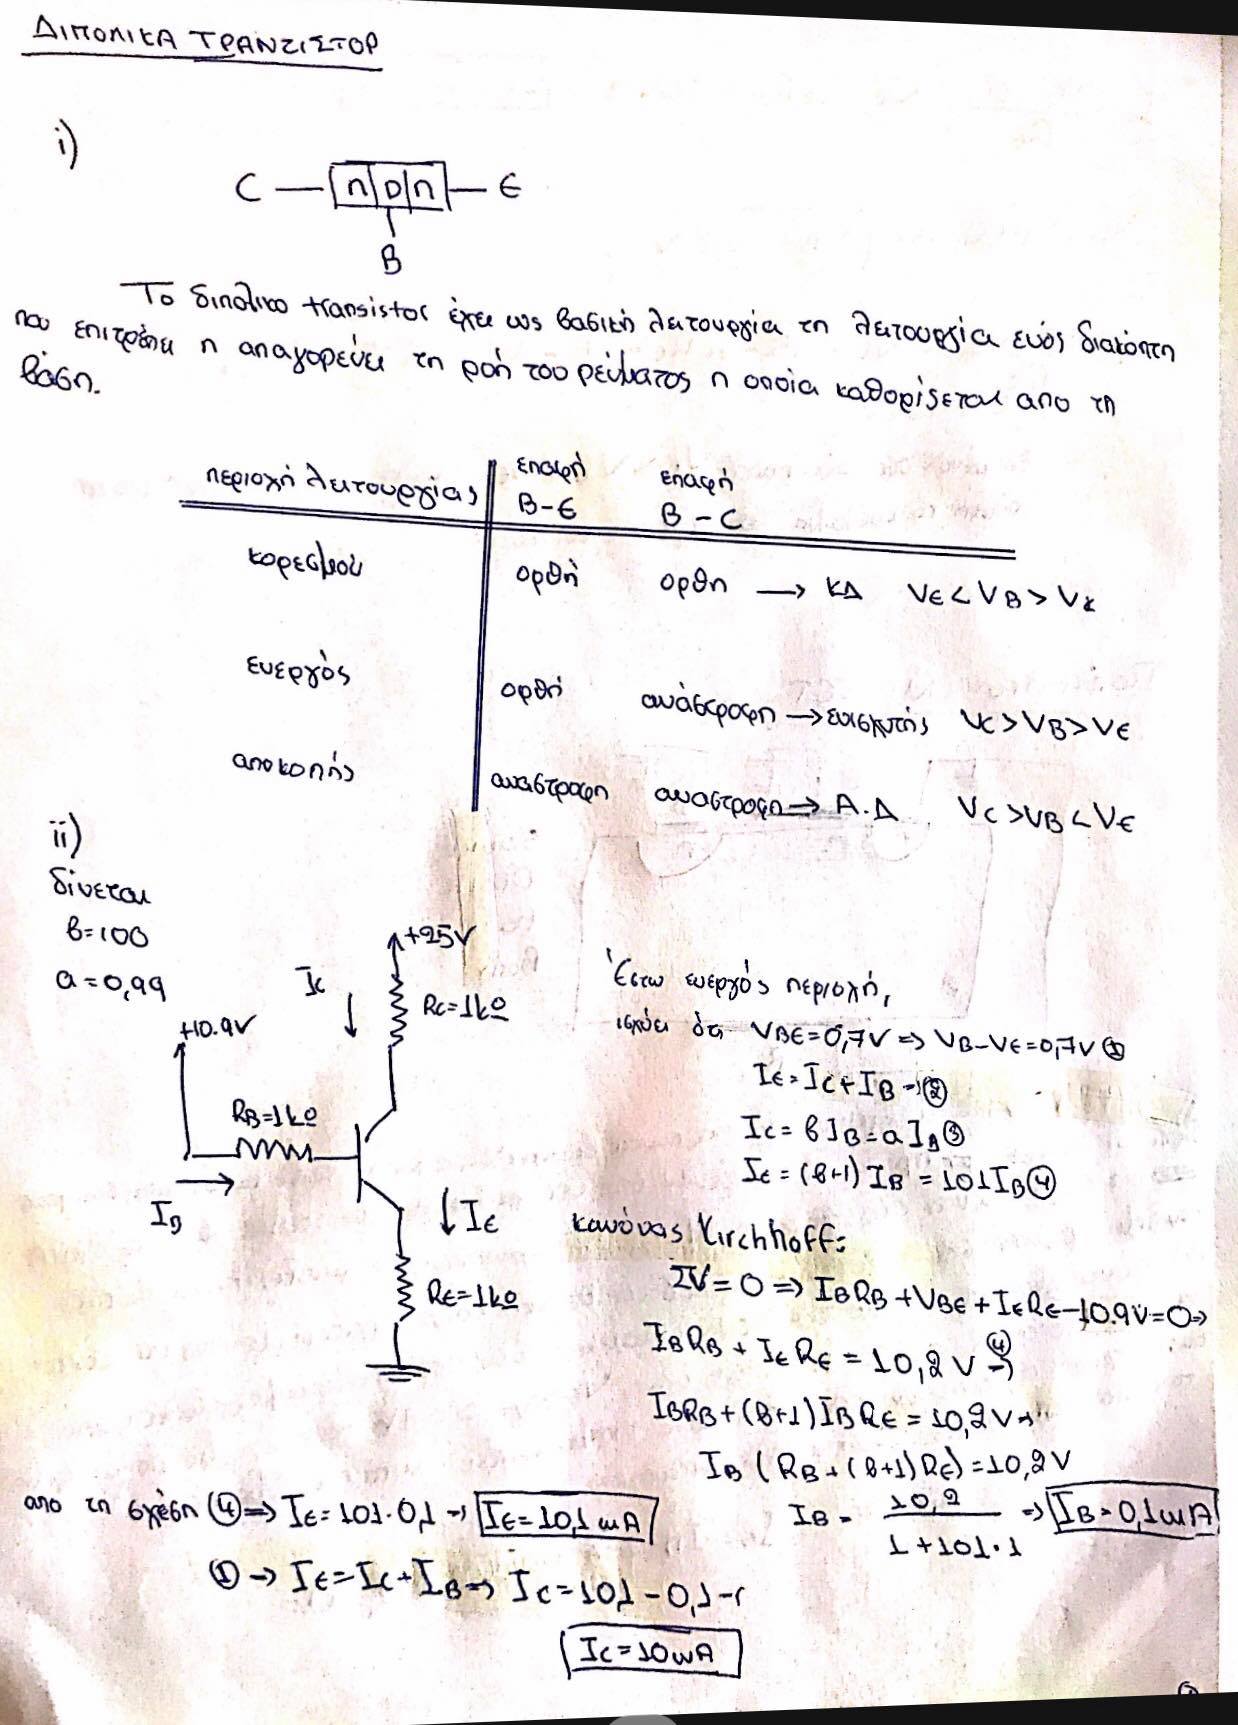 ΔΙΠΟΛΙΚΑ ΤΡΑΝΖΙΣΤΟΡ
i)
C — n p n — E
B
Το διπολικο transistor έχει ως βασική λειτουργία τη λειτουργία ενός διακόπτη
που επιτρέπει η απαγορεύει τη ροή του ρεύματος η οποία καθορίζεται απο τη
βάση.
περιοχή λειτουργίας επαφή B-E επαφή B-C
κορεσμού ορθή ορθη → ΚΔ VE < VB > VC
ενεργός ορθή ανάστροφη → ενισχυτής VC > VB > VE
αποκοπής αναστροφη αναστροφη → Α.Δ VC > VB < VE
ii)
δίνεται
β=100
α=0,99
+10.9V
+25V
IC
RC=1kΩ
RB=1kΩ
IB
IE
RE=1kΩ
Έστω ενεργός περιοχή,
ισχύει ότι VBE=0,7V ⇒ VB-VE=0,7V ①
IE=IC+IB → ②
IC=βIB=αIB ③
IE=(β+1)IB=101IB ④
κανόνας Kirchhoff:
ΣV=0 ⇒ IBRB+VBE+IERE-10.9V=0 ⇒
IBRB+IERE=10,2V ④⇒
IBRB+(β+1)IBRE=10,2V →
IB(RB+(β+1)RE)=10,2V
IB = 10,2 / 1+101·1 ⇒ IB=0,1mA
απο τη σχέση ④ ⇒ IE=101·0,1 → IE=10,1mA
① → IE=IC+IB ⇒ IC=10,1-0,1 →
IC=10mA